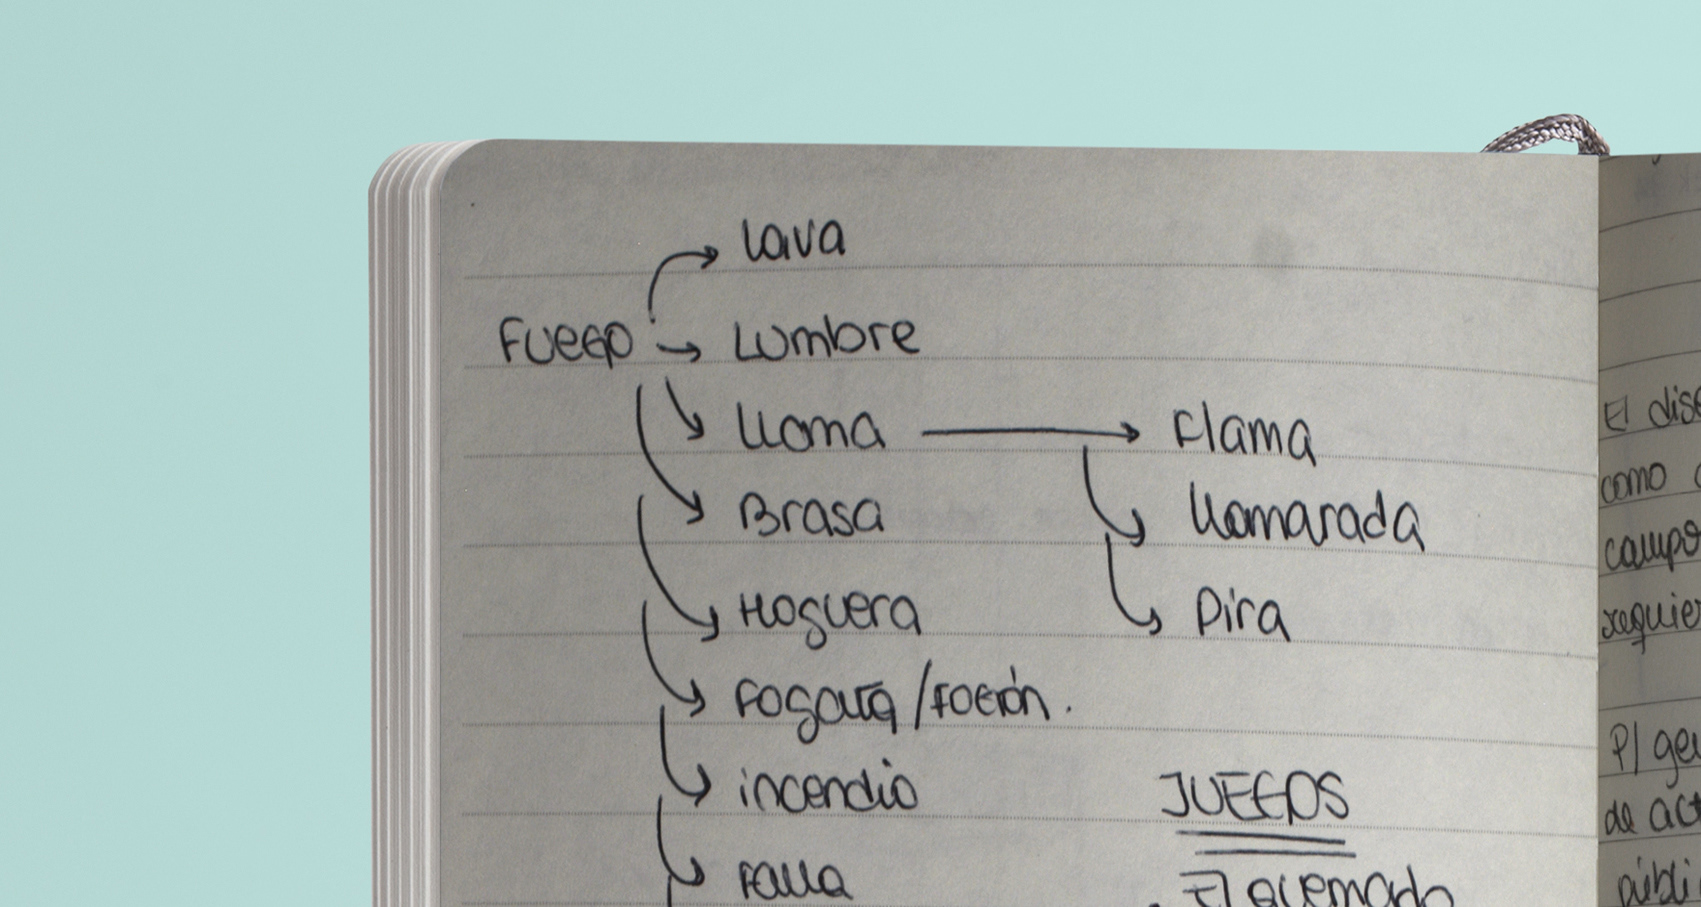 Lava
Fuego Lumbre
Llama Flama
Brasa Llamarada
Hoguera Pira
Fogata / Fogón.
incendio
JUEGOS
Falla
El quemado
El dis
como
campo
requie
P/ ge
de act
públi